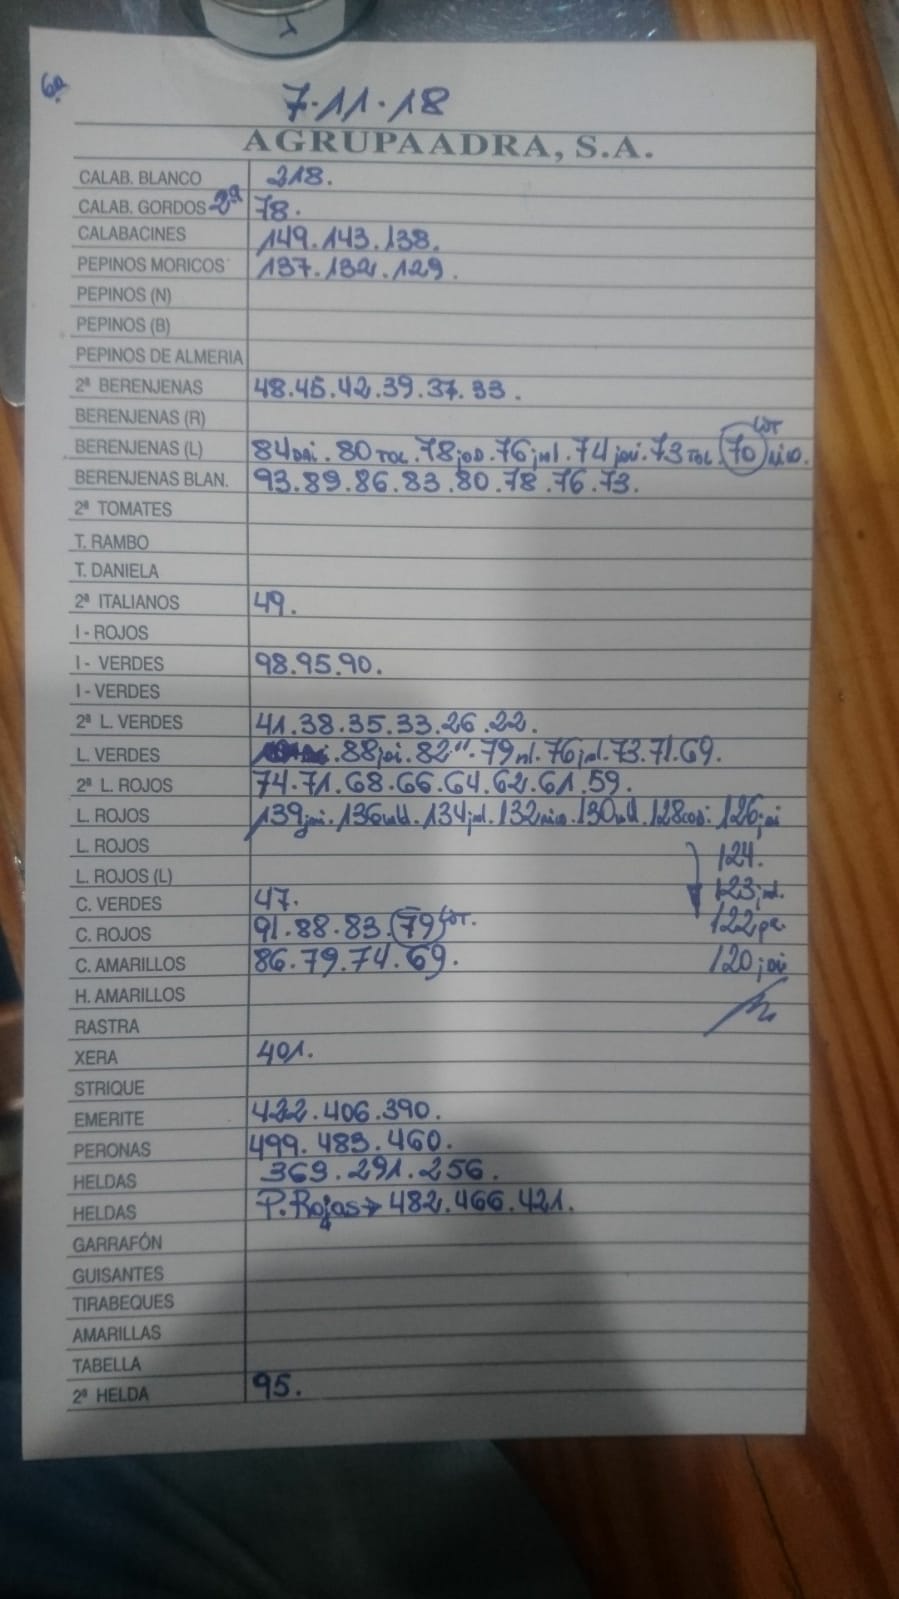 6a
7.11.18
AGRUPAADRA, S.A.
CALAB. BLANCO 218.
CALAB. GORDOS 2ª 78.
CALABACINES 149.143.138.
PEPINOS MORICOS 137.132.129.
PEPINOS (N)
PEPINOS (B)
PEPINOS DE ALMERIA
2ª BERENJENAS 48.45.42.39.37.33.
BERENJENAS (R)
BERENJENAS (L) 84 . 80 TOC . 78 . 76 jml . 74 joi . 73 TOC . 70 LOT nico.
BERENJENAS BLAN. 93.89.86.83.80.78.76.73.
2ª TOMATES
T. RAMBO
T. DANIELA
2ª ITALIANOS 49.
I - ROJOS
I - VERDES 98.95.90.
I - VERDES
2ª L. VERDES 41.38.35.33.26.22.
L. VERDES .88 joi.82".79 ml.76 jml.73.71.69.
2ª L. ROJOS 74.71.68.66.64.62.61.59.
L. ROJOS 139 joi.136 .134 jml.132 nico.130 .128 .126 joi
L. ROJOS 124.
L. ROJOS (L) 123 jml.
C. VERDES 47. 122
C. ROJOS 91.88.83.79 LOT.
C. AMARILLOS 86.79.74.69. 120 joi
H. AMARILLOS
RASTRA
XERA 401.
STRIQUE
EMERITE 422.406.390.
PERONAS 499.483.460.
HELDAS 369.291.256.
HELDAS P. Rojas → 482.466.421.
GARRAFÓN
GUISANTES
TIRABEQUES
AMARILLAS
TABELLA
2ª HELDA 95.